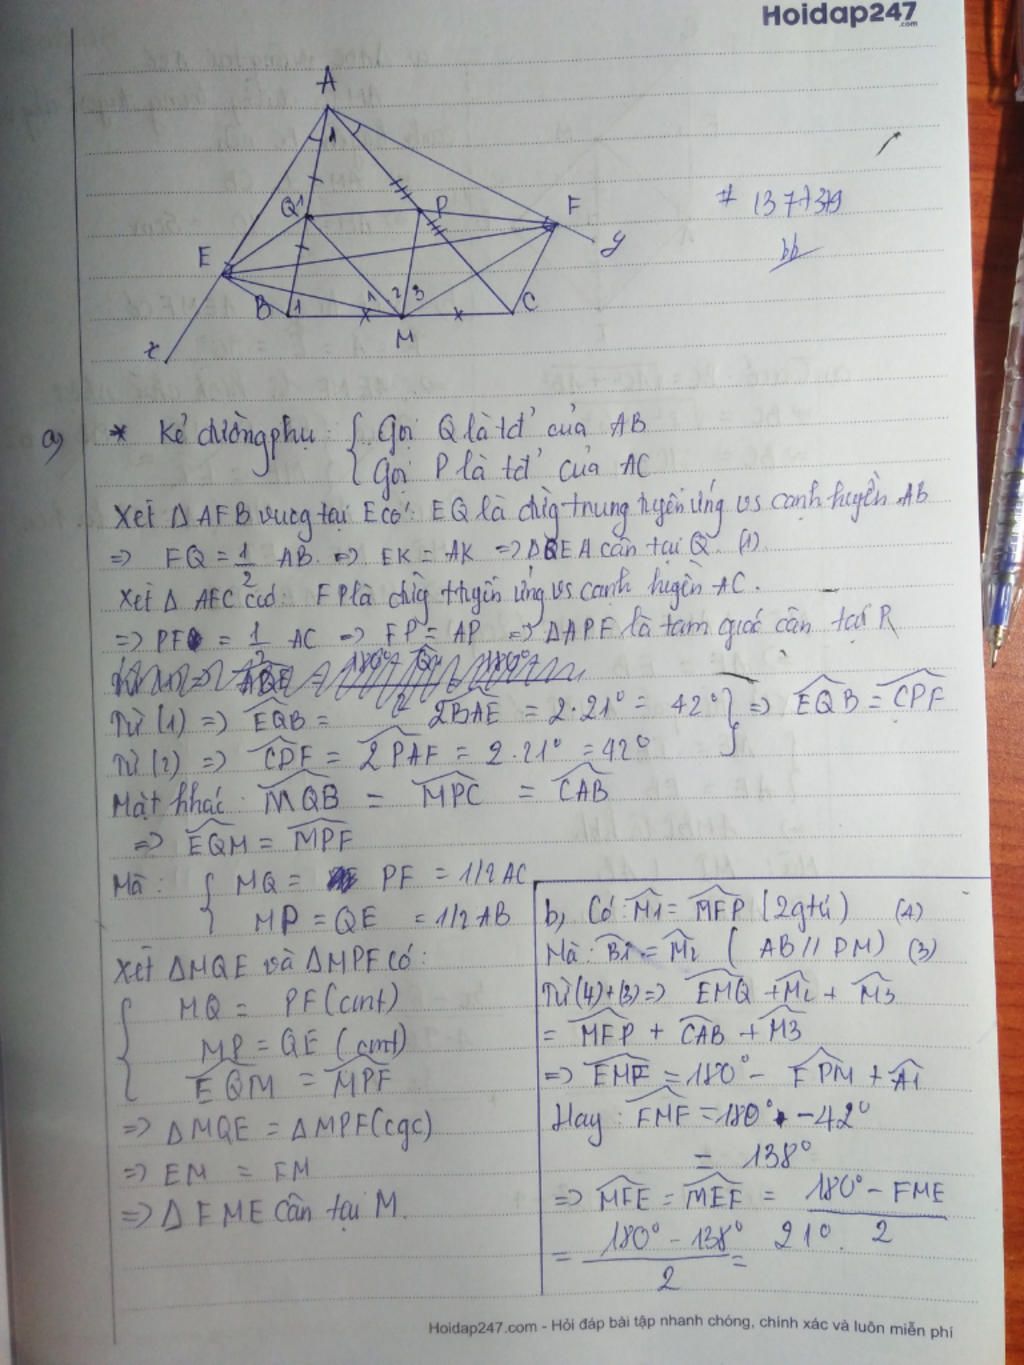 Hoidap247
.com
A
1
Q 1
P
F
y
E
B 1
1 2 3
C
M
x
# 137+379
bb
a) * Kẻ đường phụ: { Gọi Q là tđ' của AB
{ Gọi P là tđ' của AC
Xét Δ AEB vuog tại E có: EQ là đừg trung tuyến ứng vs cạnh huyền AB
=> EQ = 1/2 AB => EK = AK => ΔQEA cân tại Q. (1)
Xét Δ AFC có: FP là đừg ttuyến ứng vs cạnh huyền AC.
=> PF = 1/2 AC => FP = AP => ΔAPF là tam giác cân tại P
Từ (1) => EQB = 2BAE = 2.21° = 42° } => EQB = CPF
Từ (2) => CPF = 2PAF = 2.21° = 42°
Mặt khác: MQB = MPC = CAB
=> EQM = MPF
Mà: { MQ = PF = 1/2 AC
{ MP = QE = 1/2 AB
Xét ΔMQE và ΔMPF có:
{ MQ = PF (cmt)
MP = QE (cmt)
EQM = MPF
=> ΔMQE = ΔMPF (cgc)
=> EM = FM
=> Δ FME cân tại M.
b, Có: M1 = MFP (2gtứ) (4)
Mà: B1 = M2 ( AB // PM) (3)
Từ (4)+(3) => EMQ + M2 + M3
= MFP + CAB + M3
=> EMF = 180° - FPM + A1
Hay: FMF = 180° - 42°
= 138°
=> MFE = MEF = 180° - FME / 2
= 180° - 138° / 2 = 21°.
Hoidap247.com - Hỏi đáp bài tập nhanh chóng, chính xác và luôn miễn phí